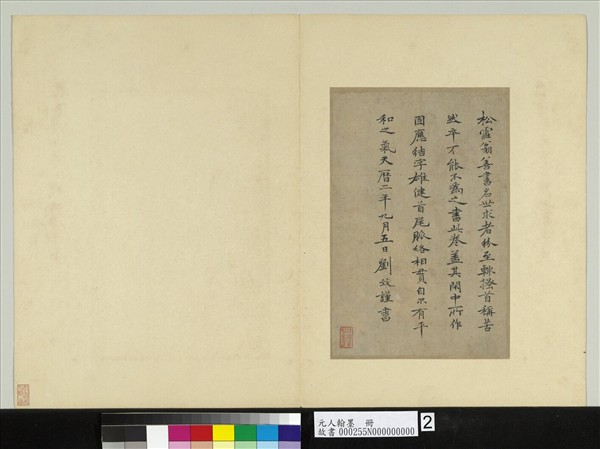 松雪翁善書名世求者終至輒搔首稱苦
然卒不能不為之書此卷蓋其閑中所作
固應結字雄健首尾脈絡相貫自爾有平
和之氣天曆二年九月五日劉致謹書
元人翰墨 冊
故書 000255N000000000
2